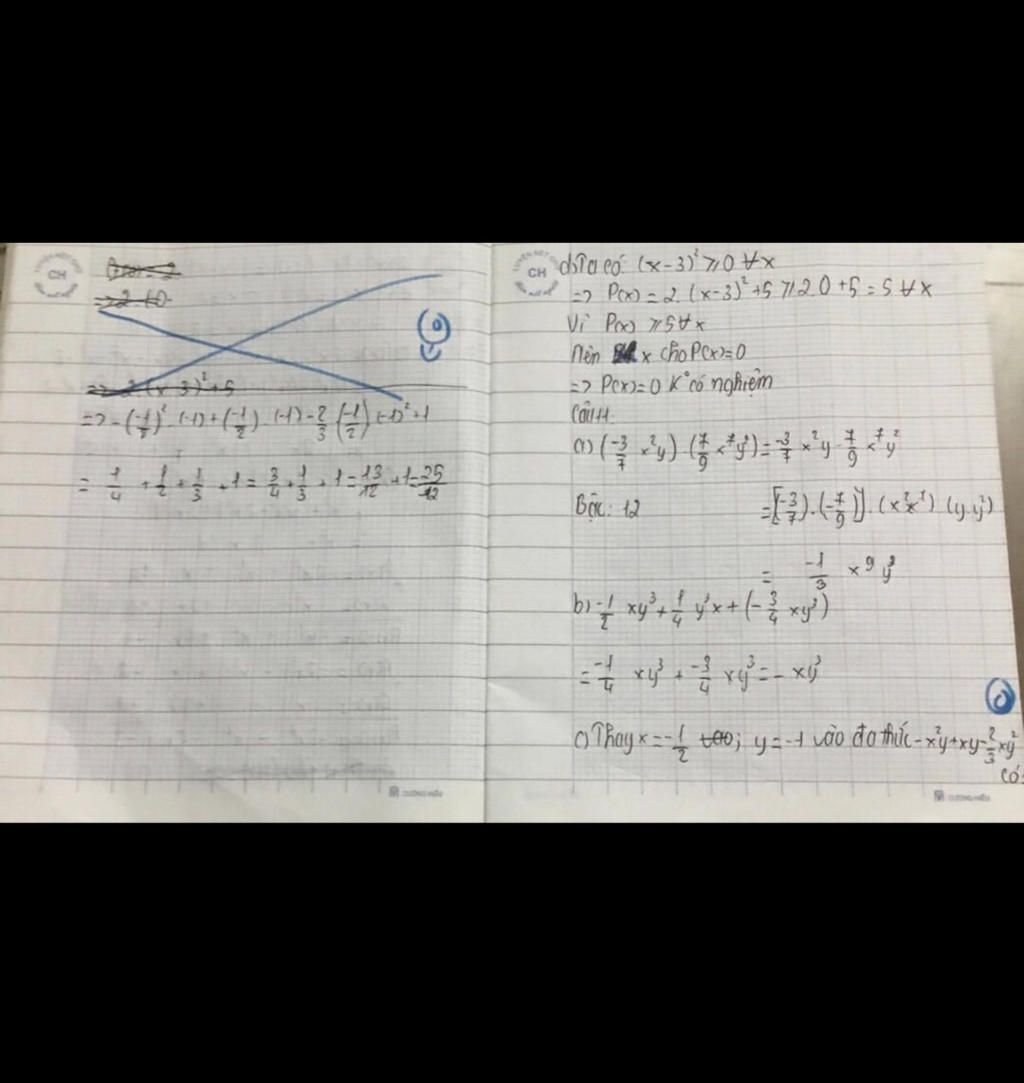 CH
=> 2.(x-3)²+5
=> -(-1/2)².(-1)+(-1/2).(-1)-2/3.(-1/2).(-1)²+1
= 1/4 + 1/2 + 1/3 + 1 = 3/4 + 1/3 + 1 = 13/12 + 1 = 25/12
CƯỜNG HIỂU
CH
d) Ta có: (x-3)² ≥ 0 ∀x
=> P(x) = 2.(x-3)²+5 ≥ 2.0+5 = 5 ∀x
Vì P(x) ≥ 5 ∀x
Nên x cho P(x)=0
=> P(x)=0 K° có nghiệm
Câu 11:
a) (-3/7 x²y).(7/9 x⁷y²) = -3/7 x²y.7/9 x⁷y²
Bậc: 12 = [(-3/7).(-7/9)].(x²x⁷)(y.y²)
= -1/3 x⁹y³
b) -1/2 xy³ + 1/4 y³x + (-3/4 xy³)
= -1/4 xy³ + -3/4 xy³ = -xy³
c) Thay x = -1/2; y = -1 vào đa thức -x²y+xy-2/3xy²
có: